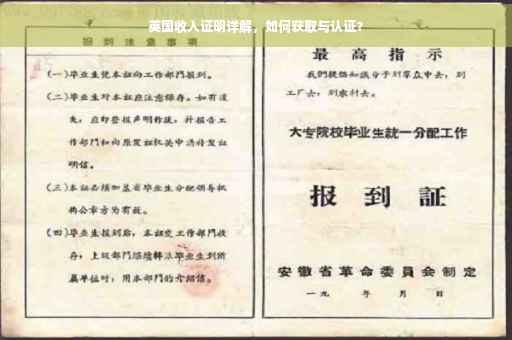 英国收入证明详解，如何获取与认证？
报到注意事项
(一)毕业生凭本证向工作部门报到。
(二)毕业生对本证应注意保存。如有遗
失，应即登报声明作废，并报告工
作部门和向原发证机关申请补发证
明信。
(三)本证必须加盖省毕业生分配领导机
构公章方为有效。
(四)毕业生报到后，本证交工作部门收
存；上级部门继续转派毕业生到所
属单位时，用本部门的介绍信。
最高指示
我们提倡知识分子到群众中去，到
工厂去，到农村去。
大专院校毕业生統一分配工作
报到証
安徽省革命委員会制定
一九 年 月 日